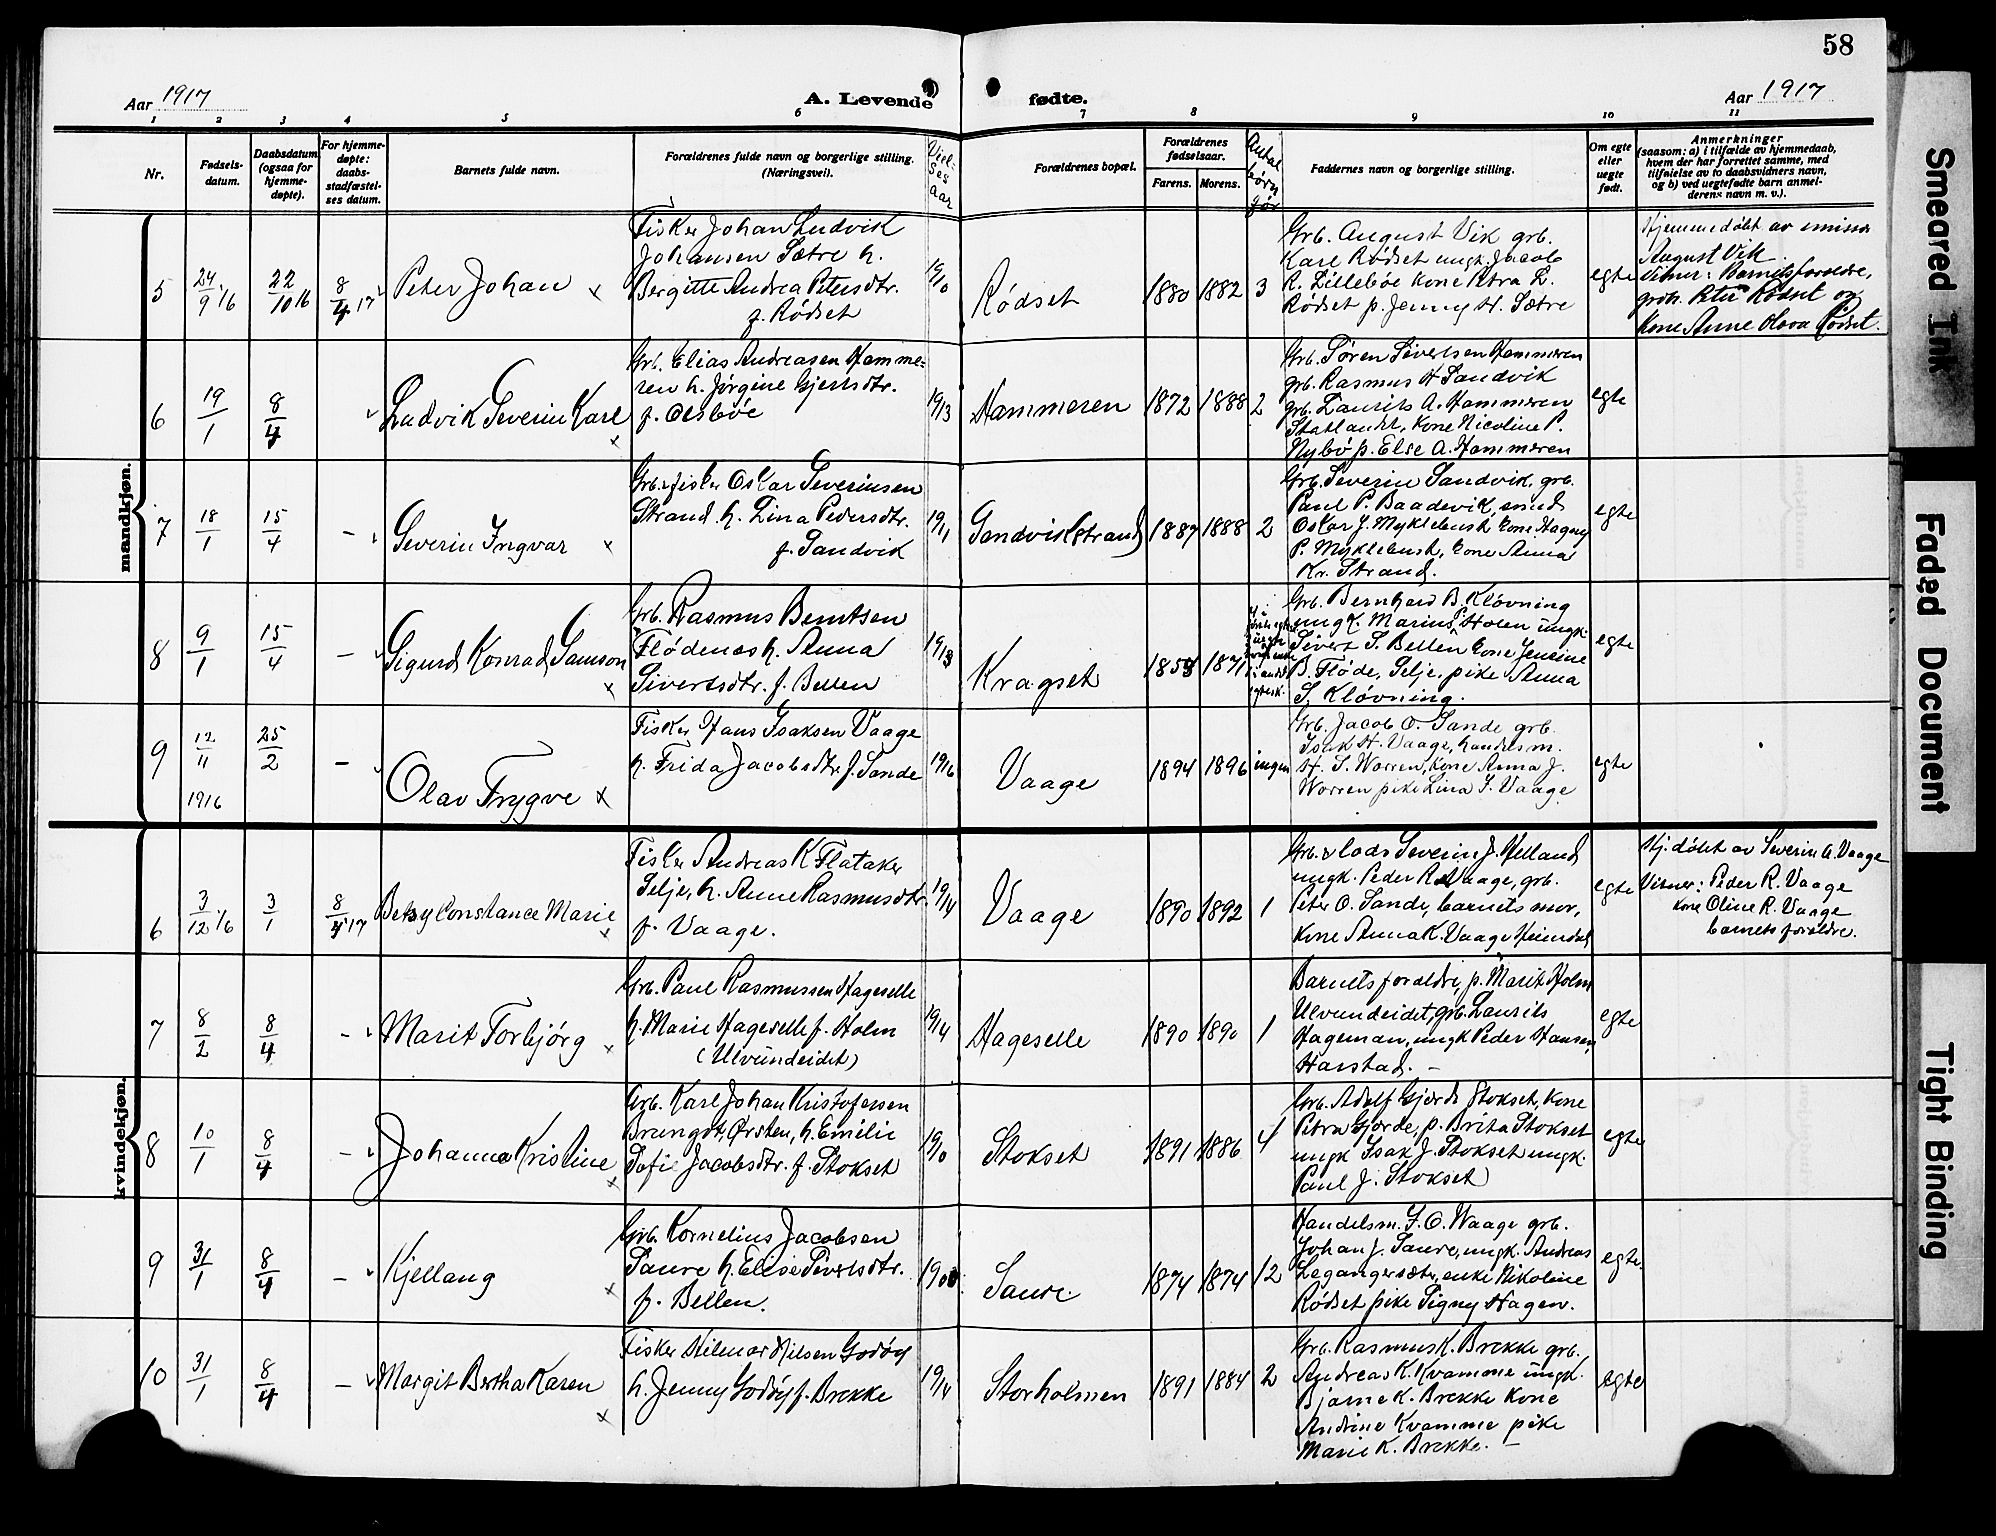 58
Aar 1917
A. Levende
fødte.
Aar 1917
1 2 3 4 5 6 7 8 9 10 11
Nr.
Fødsels-
datum.
Daabsdatum
(ogsaa for
hjemme-
døpte).
For hjemme-
døpte:
daabs-
stadfæstel-
ses datum.
Barnets fulde navn.
Forældrenes fulde navn og borgerlige stilling.
(Næringsvei).
Viel-
ses
aar
Forældrenes bopæl.
Forældrenes
fødselsaar.
Farens. Morens.
Antal
børn
før
Faddernes navn og borgerlige stilling.
Om egte
eller
uegte
født.
Anmerkninger
(saasom: a) i tilfælde av hjemmedaab,
hvem der har forrettet samme, med
tilføielse av to daabsvidners navn,
og b) ved uegtefødte barn anmel-
derens navn m. v.).
mandkjøn.
5
24/9 16
22/10 16
8/4 17
Peter Johan x
Fisker Johan Ludvik
Johansen Sætre h.
Bergitte Andrea Petersdtr.
f. Rødset
19/0
Rødset
1880 1882 3
Grb. August Vik grb.
Karl Rødset ungk. Jacob
R. Lillebøe kone Petra L.
Rødset p. Jenny H. Sætre
egte
Hjemmedøbt av emissær
August Vik.
Vitner: Barnets forældre,
grb. Peter Rødset og
kone Anne Olava Rødset.
6
19/1
8/4
Ludvik Severin Karl x
Grb. Elias Andreasen Hamme-
ren h. Jørgine Gjertsdtr.
f. Olsbøe
19/13
Hammeren
1872 1888 2
Grb. Søren Sivertsen Hammeren
grb. Rasmus H Sandvik
grb. Laurits A. Hammeren
Statlandet, kone Nicoline P.
Nybø p. Else A. Hammeren
egte
7
18/1
15/4
-
Severin Ingvar x
Grb. & fisker Oskar Severinsen
Strand h. Lina Pedersdtr.
f. Sandvik
19/11
Sandvikstrand
1887 1888 2
Grb. Severin Sandvik, grb.
Paul P. Baadsvik, smed
Oskar J. Myklebust kone Hagny
P. Myklebust, kone Anna
Kr. Strand.
egte
8
9/1
15/4
-
Sigurd Konrad Samson x
Grb. Rasmus Berntsen
Flødenes h. Anna
Sivertsdtr. f. Bellen
1913
Kragset
1854 1871
Grb. Bernhard B. Kløvning
ungk. Marius P. Holen ungk.
Sivert S. Bellen kone Jensine
B. Fløde, Selje, pike Anna
S. Kløvning.
egte
9
12/11
1916
25/2
-
Olav Trygve x
Fisker Hans Isaksen Vaage
h. Frida Jacobsdtr. f. Sande
19/16
Vaage
1894 1896 ingen
Grb. Jacob O. Sande grb.
Isak H. Vaage, handelsm.
H. S. Worren, kone Anna J.
Worren pike Lina I. Vaage
egte
kvindekjøn.
6
3/12 16
3/1
8/4 17
Betsy Constance Marie x
Fisker Andreas K Flataker
Selje, h. Anne Rasmusdtr.
f. Vaage.
19/14
Vaage
1890 1892 1
Grb. & lods Severin J. Helland
ungk. Peder R. Vaage, grb.
Peter O. Sande, barnets mor,
kone Anna K. Vaage Heimdal
egte
Hj. døbt av Severin A. Vaage
Vitner: Peder R. Vaage
kone Oline R. Vaage
barnets forældre.
7
8/2
8/4
-
Marit Torbjørg x
Grb. Paul Rasmussen Hageselle
h. Marie Hageselle f. Holm
(Ulvundeidet)
19/14
Hageselle
1890 1890 1
Barnets forældre, p. Marit Holm
Ulvundeidet, grb. Laurits
Hageman, ungk Peder Hansen,
Harstad. -
egte
8
10/1
8/4
-
Johanna Kristine x
Grb. Karl Johan Kristofersen
Brungot, Ørsten, h. Emilie
Sofie Jacobsdtr. f. Stokset
19/0
Stokset
1891 1886 4
Grb. Adolf Gjerde Stokset, kone
Petra Gjerde, p. Brita Stokset
ungk Isak J. Stokset ungk.
Paul J. Stokset
egte
9
31/1
8/4
-
Kjellaug x
Grb. Kornelius Jacobsen
Saure h. Elise Sivertsdtr.
f. Bellen.
1900
Saure
1874 1874 12
Handelsm. I. O. Waage grb.
Johan J. Saure, ungk. Andreas
Legangersæter, enke Nikoline
Rødset pike Signy Hagen.
egte.
10
31/1
8/4
-
Margit Bertha Karen x
Fisker Hilmar Nilsen Godøy
h. Jenny Godøy f. Brekke
19/14
Storholmen
1891 1884 2
Grb. Rasmus K. Brekke grb.
Andreas K. Kvamme ungk.
Bjarne K. Brekke kone
Andrine Kvamme pike
Marie K. Brekke. -
egte
Smeared Ink
Faded Document
Tight Binding